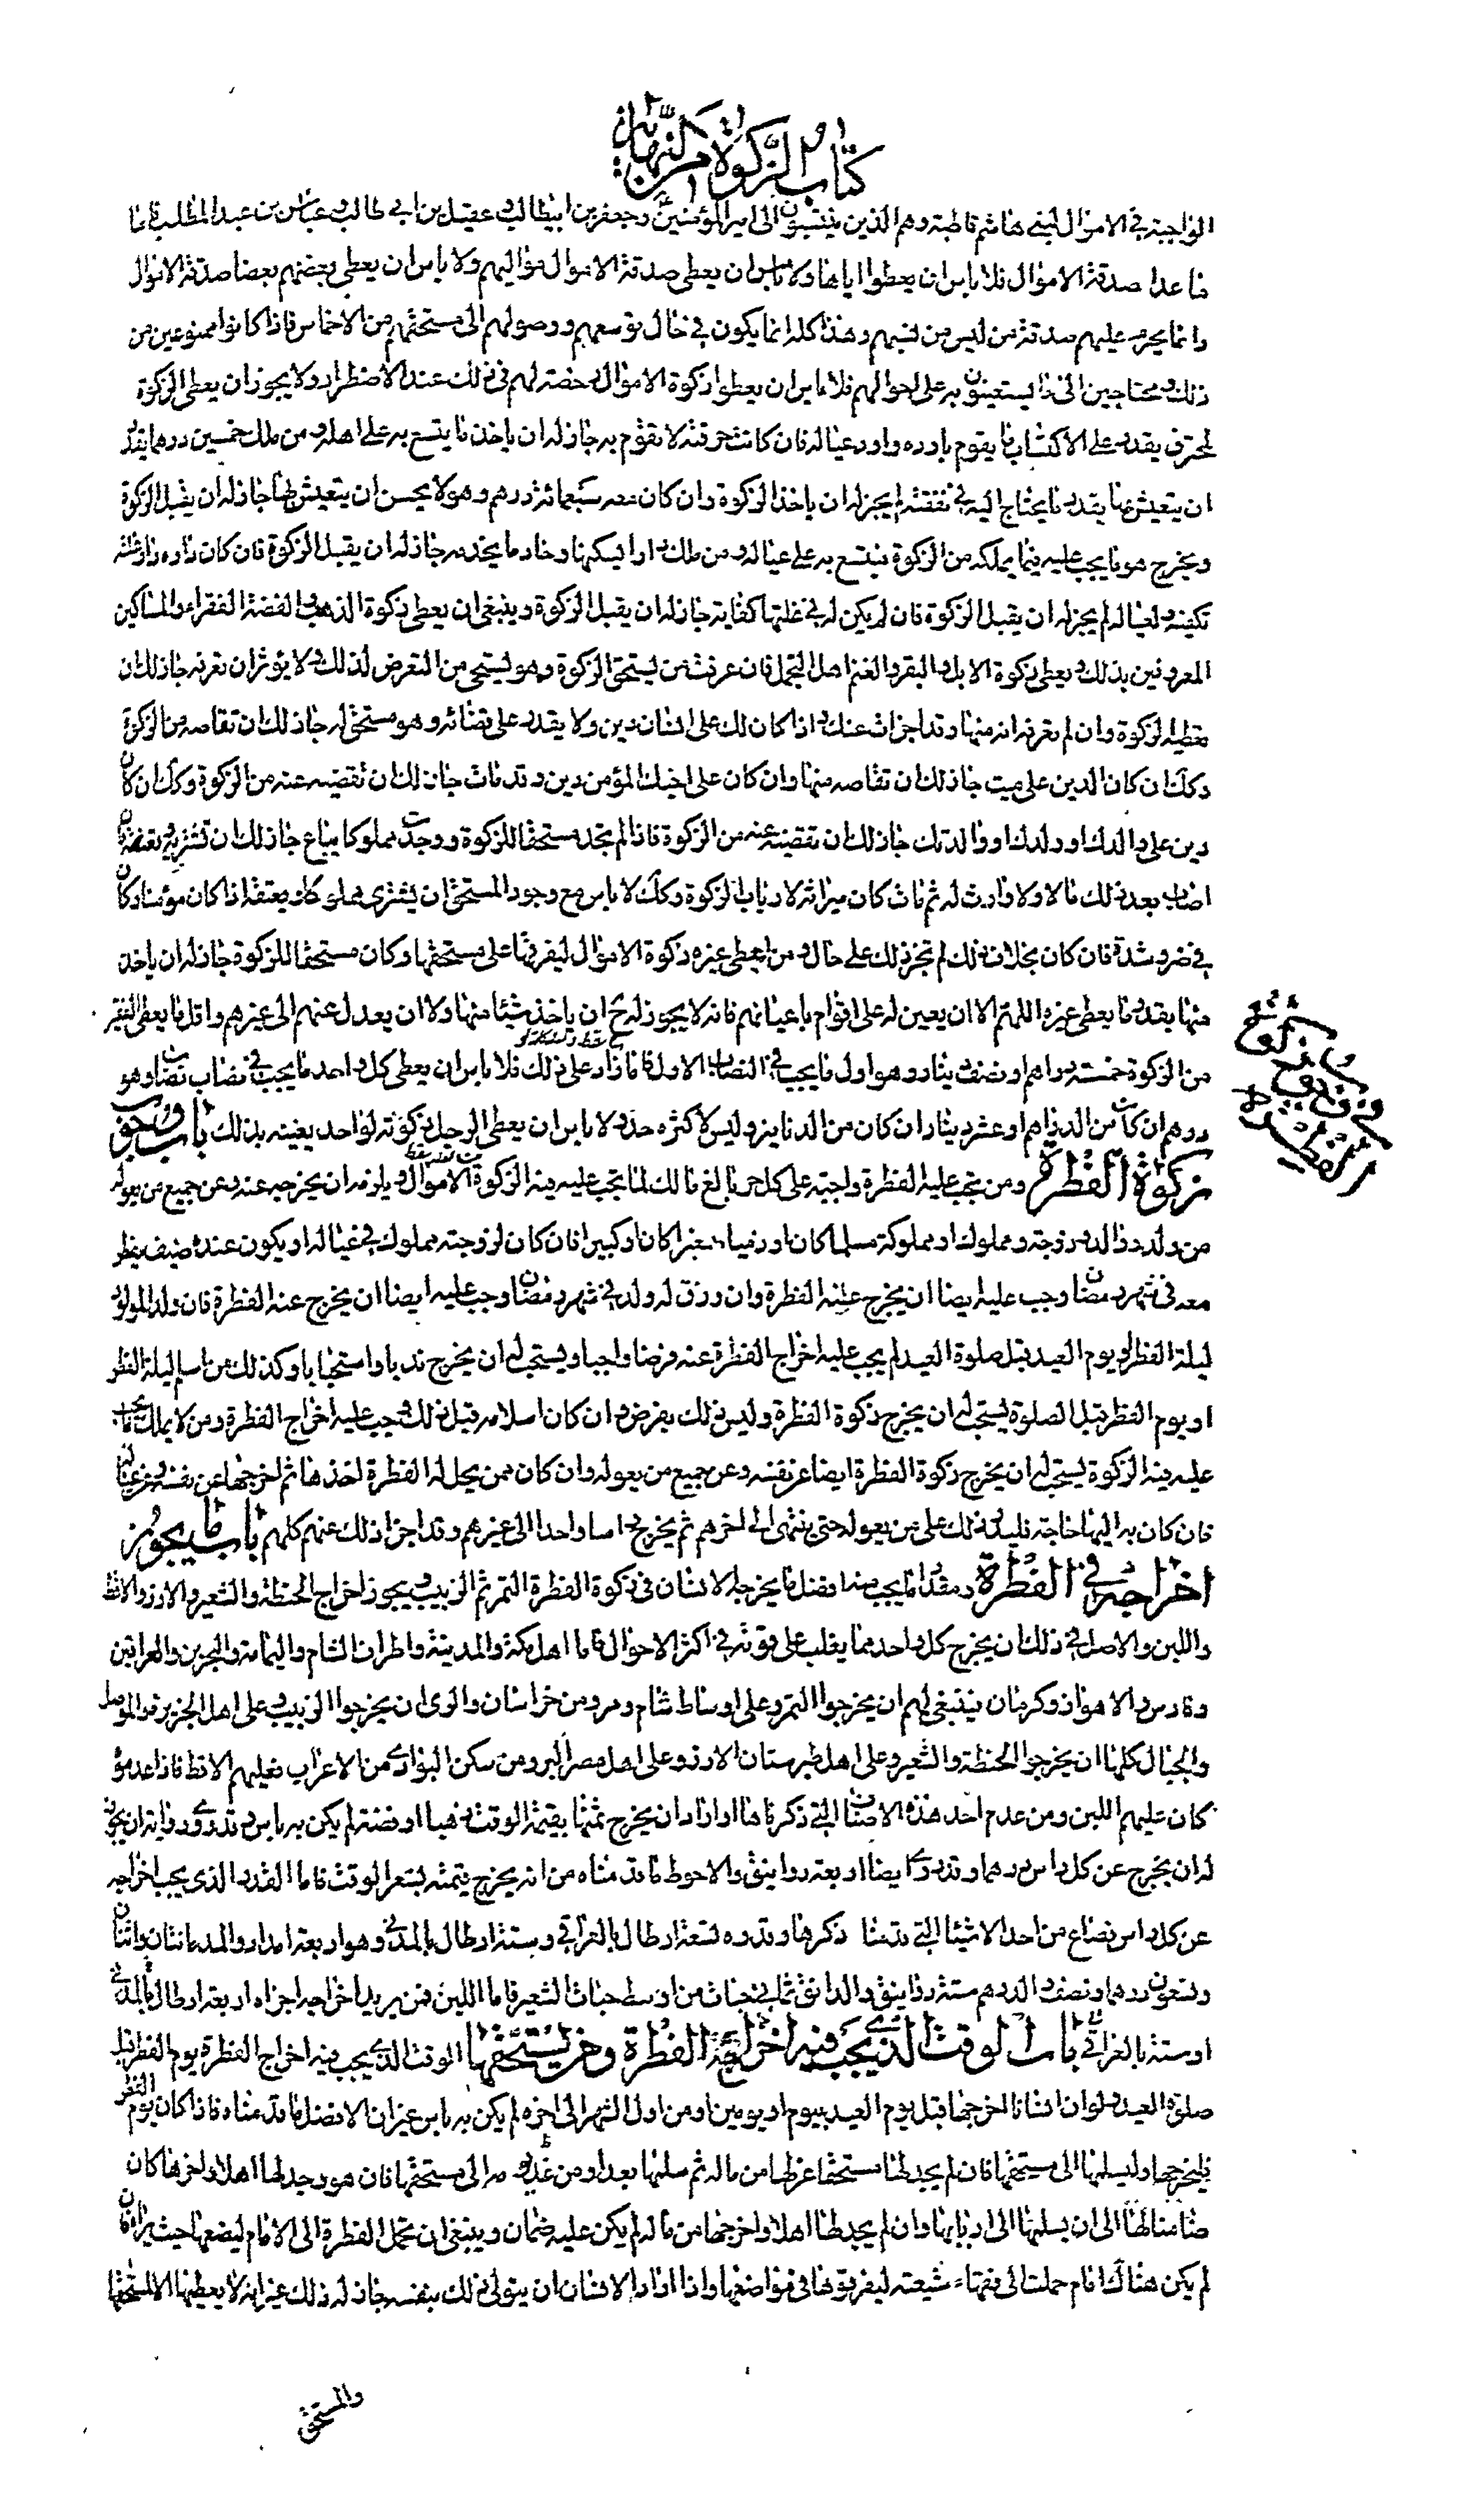 كتاب الزكوة من النهاية
الواجبة في الاموال لبني هاشم قاطبة وهم الذين ينتسبون الى امير المؤمنين ع وجعفر بن ابيطالب وعقيل بن ابي طالب وعباس بن عبد المطلب فاما
ما عدا صدقة الاموال فلا باس ان يعطوا اياها ولا باس ان يعطى صدقة الاموال مواليهم ولا باس ان يعطى بعضهم بعضا صدقة الاموال
وانما يحرم عليهم صدقة من ليس من نسبهم وهذا كله انما يكون في حال توسعهم ووصولهم الى مستحقهم من الاخماس فاذا كانوا ممنوعين من
ذلك ومحتاجين الى ما يستعينون به على احوالهم فلا باس ان يعطوا زكوة الاموال رخصة لهم في ذلك عند الاضطرار ولا يجوز ان يعطى الزكوة
لمحترف يقدر على الاكتساب ما يقوم باوده واود عياله فان كانت حرفته لا تقوم به جاز له ان ياخذ ما يتسع به على اهله ومن ملك خمسين درهما يقدر
ان يتعيش بها بقدر ما يحتاج اليه في نفقته لم يجز له ان ياخذ الزكوة وان كان معه سبعمائة درهم وهو لا يحسن ان يتعيش بها جاز له ان يقبل الزكوة
ويخرج هو ما يجب عليه فيما يملكه من الزكوة فيتسع به على عياله ومن ملك دارا يسكنها وخادما يخدمه جاز له ان يقبل الزكوة فان كان داره دار غلة
تكفيه ولعياله لم يجز له ان يقبل الزكوة فان لم يكن له في غلتها كفاية جاز له ان يقبل الزكوة وينبغي ان يعطى زكوة الذهب والفضة الفقراء والمساكين
المعروفين بذلك ويعطى زكوة الابل والبقر والغنم اهل التجمل فان عرفت من يستحق الزكوة وهو يستحي من التعرض لذلك ولا يؤثر ان تعرفه جاز لك ان
تعطيه الزكوة وان لم تعرفه انه منها وقد اجزات عنك واذا كان لك على انسان دين ولا يقدر على قضائه وهو مستحق له جاز لك ان تقاصه من الزكوة
وكك ان كان الدين على ميت جاز لك ان تقاصه منها وان كان على اخيك المؤمن دين وقد مات جاز لك ان تقضيه عنه من الزكوة وكك ان كان
دين على والدك او ولدك او والدتك جاز لك ان تقضيه عنه من الزكوة فاذا لم تجد مستحقا للزكوة ووجدت مملوكا يباع جاز لك ان تشتريه وتعتقه فان
اصاب بعد ذلك مالا ولا وارث له ثم مات كان ميراثه لارباب الزكوة وكك لا باس مع وجود المستحق ان يشترى مملوكا ويعتقه اذا كان مؤمنا وكان
في ضر وشدة فان كان بخلاف ذلك لم تجز ذلك على حال ومن اعطى غيره زكوة الاموال ليفرقها على مستحقها وكان مستحقا للزكوة جاز له ان ياخذ
منها بقدر ما يعطى غيره اللهم الا ان يعين له على اقوام باعيانهم فانه لا يجوز له ح ان ياخذ شيئا منها ولا ان يعدل عنهم الى غيرهم واقل ما يعطى الفقير
من الزكوة خمسة دراهم او نصف دينار وهو اول ما يجب في النصاب الاول فاما ما زاد على ذلك فلا باس ان يعطى كل واحد ما يجب في نصاب نصاب وهو
درهم ان كان من الدراهم او عشر دينار ان كان من الدنانير وليس لاكثره حد ولا باس ان يعطى الرجل زكوته لواحد يغنيه بذلك باب وجوب
زكوة الفطرة ومن تجب عليه الفطرة واجبة على كل حر بالغ مالك لما تجب عليه فيه الزكوة الاموال ويلزمه ان يخرجه عنه وعن جميع من يعوله
من ولد ووالد وزوجة ومملوك او مملوكة مسلما كان او ذميا صغيرا كان او كبيرا فان كان لزوجته مملوك في عياله او يكون عنده ضيف يفطر
معه في شهر رمضان وجب عليه ايضا ان يخرج عنه الفطرة وان رزق له ولد في شهر رمضان وجب عليه ايضا ان يخرج عنه الفطرة فان ولد المولود
ليلة الفطر او يوم العيد قبل صلوة العيد لم يجب عليه اخراج الفطرة عنه فرضا واجبا ويستحب له ان يخرج ندبا واستحبابا وكذلك من اسلم ليلة الفطر
او يوم الفطر قبل الصلوة يستحب له ان يخرج زكوة الفطرة وليس ذلك بفرض وان كان اسلامه قبل ذلك وجب عليه اخراج الفطرة ومن لا يملك ما يجب
عليه فيه الزكوة يستحب له ان يخرج زكوة الفطرة ايضا عن نفسه وعن جميع من يعوله وان كان ممن يحل له الفطرة اخذها ثم اخرجها عن نفسه وعن عياله
فان كان به اليها حاجة فليدر ذلك على من يعوله حتى ينتهى الى اخرهم ثم يخرج راسا واحدا الى غيرهم وقد اجزا ذلك عنهم كلهم باب ما يجوز
اخراجه في الفطرة ومقدار ما يجب منه افضل ما يخرجه الانسان في زكوة الفطرة التمر ثم الزبيب ويجوز اخراج الحنطة والشعير والارز والاقط
واللبن والاصل في ذلك ان يخرج كل واحد مما يغلب على قوته في اكثر الاحوال فاما اهل مكة والمدينة واطراف الشام واليمامة والبحرين والعراقين
وفارس والاهواز وكرمان فينبغي لهم ان يخرجوا التمر وعلى اوساط شام ومرو من خراسان والرى ان يخرجوا الزبيب وعلى اهل الجزيرة والموصل
والجبال كلها ان يخرجوا الحنطة والشعير وعلى اهل طبرستان الارز وعلى اهل مصر البر ومن سكن البوادي من الاعراب فعليهم الاقط فاذا عدموه
كان عليهم اللبن ومن عدم احد هذه الاصناف التي ذكرناها او اراد ان يخرج ثمنها بقيمة الوقت ذهبا او فضة لم يكن به باس وقد روى رواية انه يجوز
له ان يخرج عن كل راس درهما وقد روى ايضا اربعة دوانيق والاحوط ما قدمناه من انه يخرج قيمته بسعر الوقت فاما القدر الذي يجب اخراجه
عن كل راس فصاع من احد الاشياء التي قدمنا ذكرها وقدره تسعة ارطال بالعراقي وستة ارطال بالمدني وهو اربعة امداد والمد مائتان واثنان
وتسعون درهما ونصف والدرهم ستة دوانيق والدانق ثماني حبات من اوسط حبات الشعير فاما اللبن فمن يريد اخراجه اجزاه اربعة ارطال بالمدني
او ستة بالعراقي باب الوقت الذي يجب فيه اخراج الفطرة ومن يستحقها الوقت الذي يجب فيه اخراج الفطرة يوم الفطر قبل
صلوة العيد ولو ان انسانا اخرجها قبل يوم العيد بيوم او يومين او من اول الشهر الى اخره لم يكن به باس غير ان الافضل ما قدمناه فاذا كان يوم الفطر
فليخرجها وليسلمها الى مستحقها فان لم يجد لها مستحقا عزلها من ماله ثم سلمها بعد او من غد يومه الى مستحقها فان هو وجد لها اهلا واخرها كان
ضامنا لها الى ان يسلمها الى اربابها وان لم يجد لها اهلا واخرجها من ماله لم يكن عليه ضمان وينبغي ان تحمل الفطرة الى الامام ليضعها حيث يراه فان
لم يكن هناك امام حملت الى فقهاء شيعته ليفرقوها في مواضعها واذا اراد الانسان ان يتولى ذلك بنفسه جاز له ذلك غير انه لا يعطيها الا لمستحقها
والمستحق